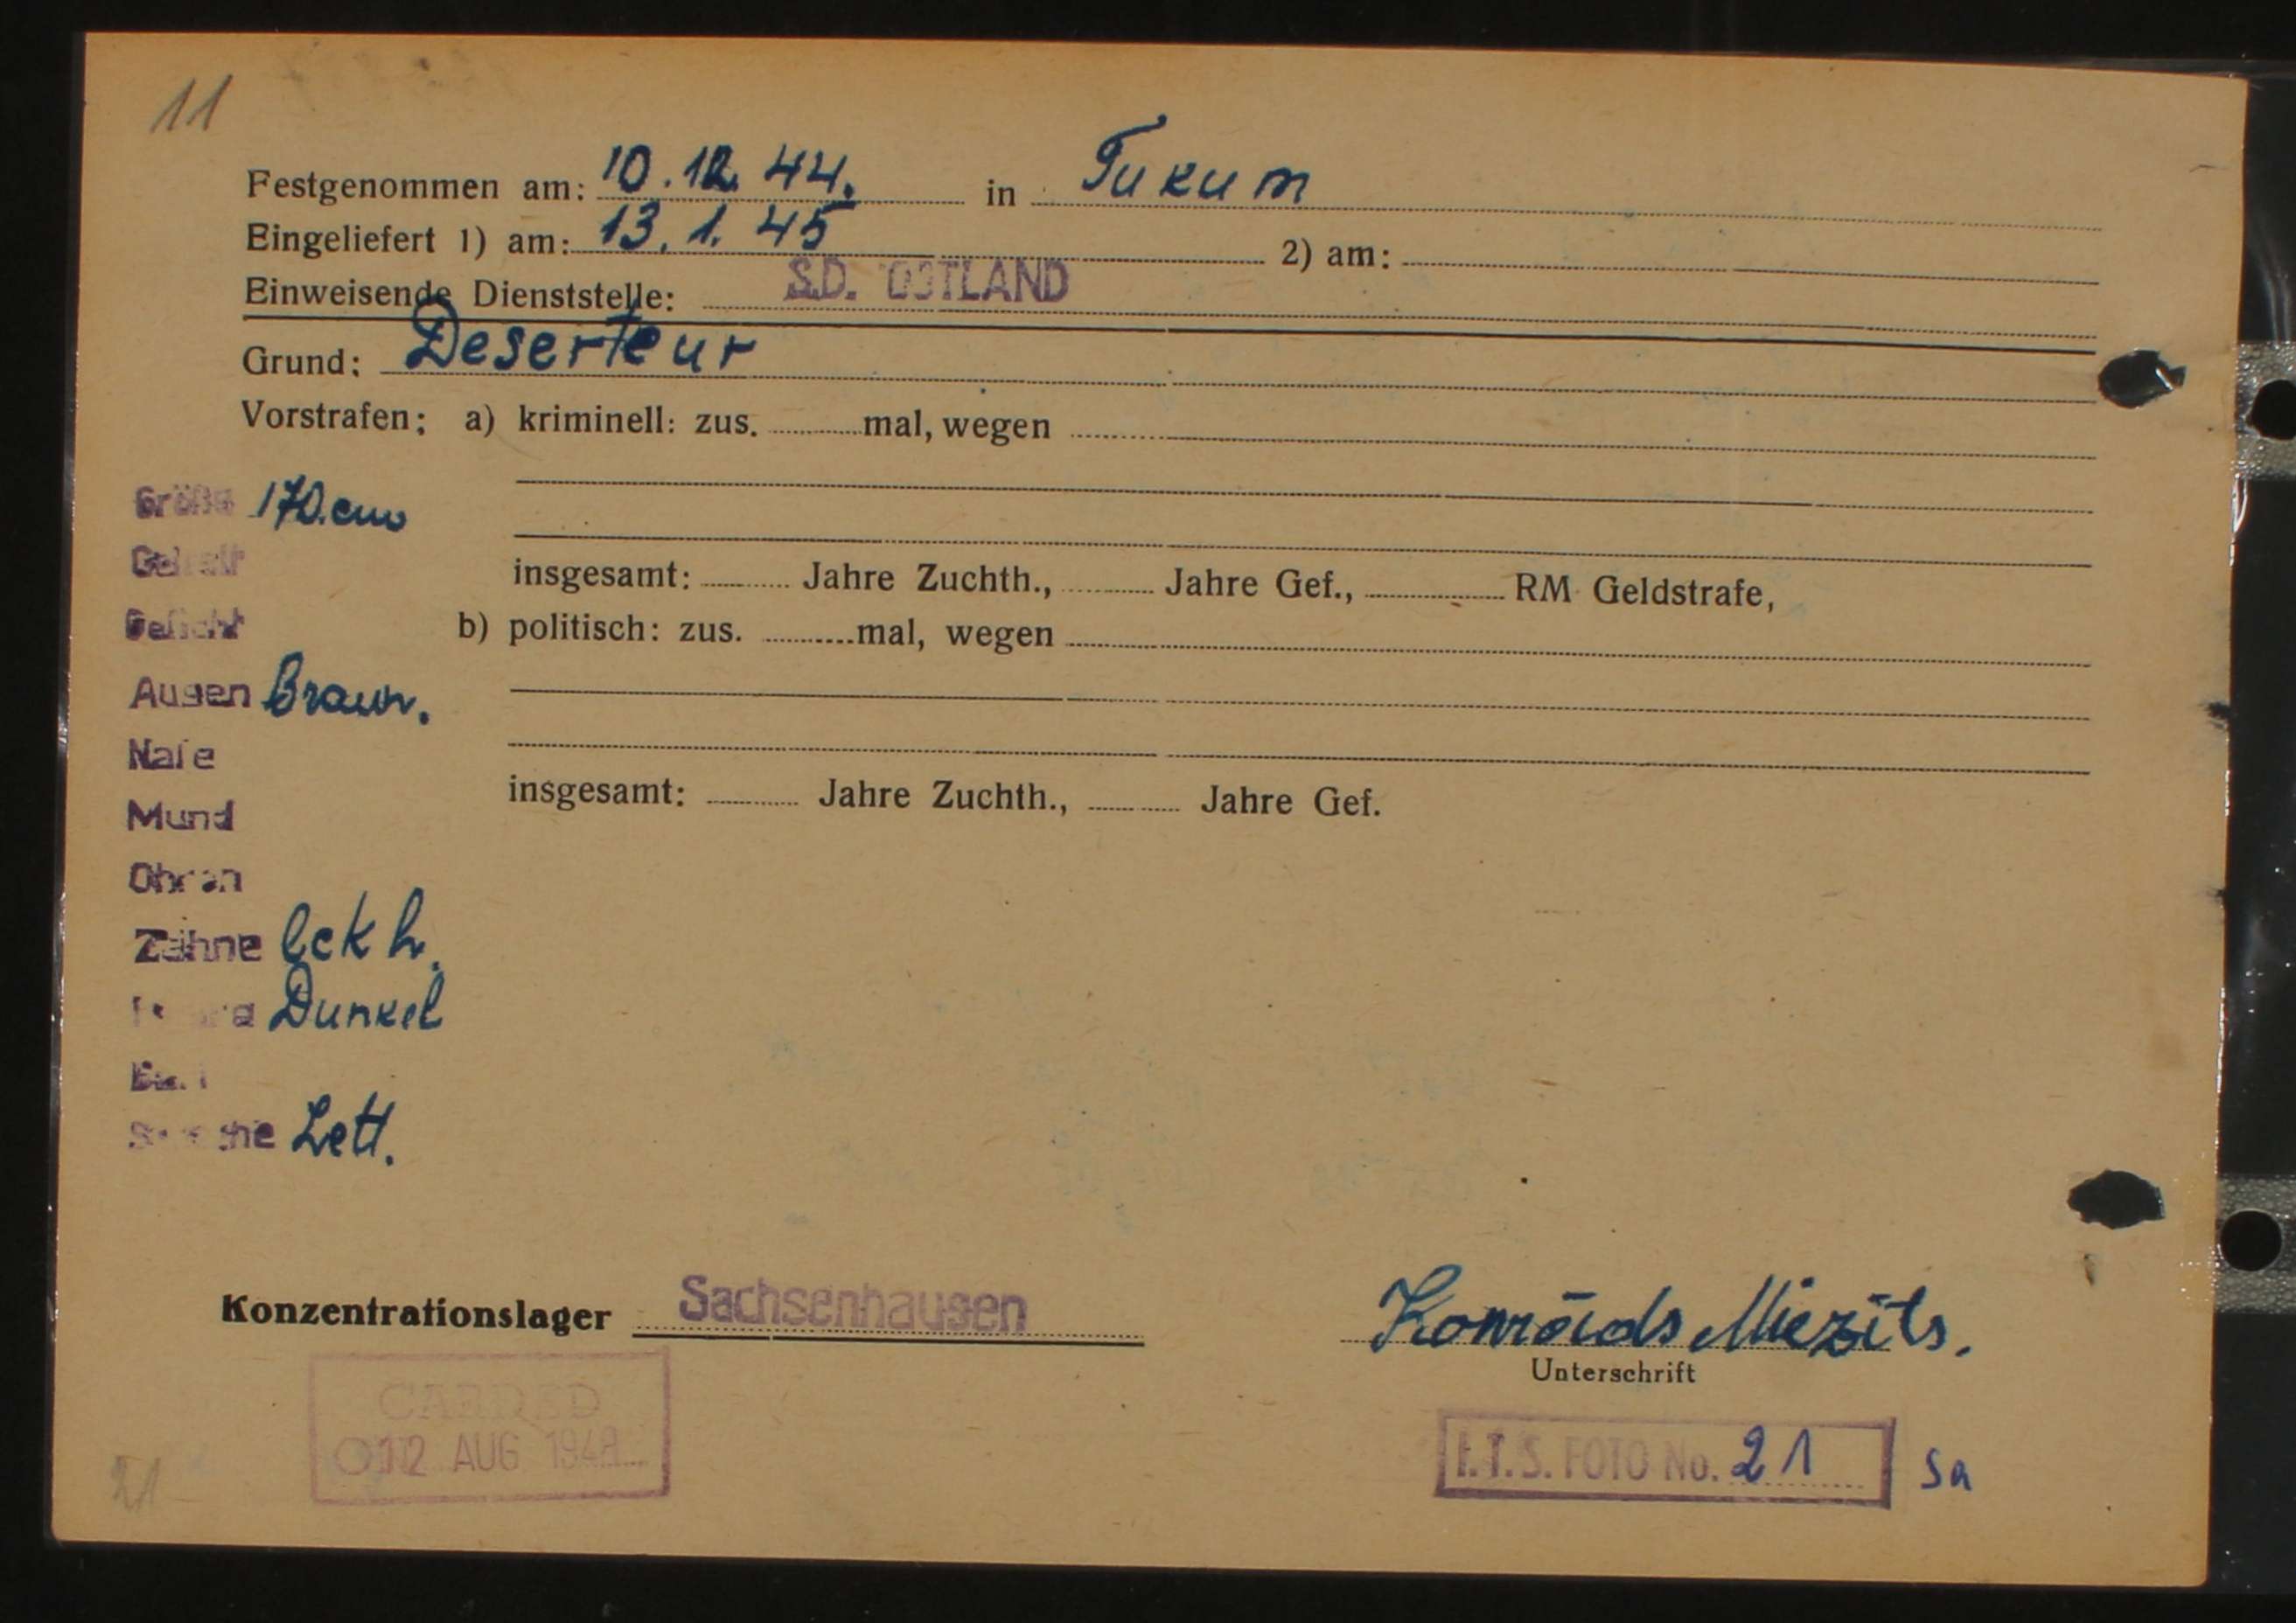 11
Festgenommen am: 10.12. 44. in Tukum
Eingeliefert 1) am: 13. 1. 45 2) am:
Einweisende Dienststelle: S.D. OSTLAND
Grund: Deserteur
Vorstrafen: a) kriminell: zus. mal, wegen
Größe 170.cm
insgesamt: Jahre Zuchth., Jahre Gef., RM Geldstrafe,
Gesicht
b) politisch: zus. mal, wegen
Augen Braun.
Nase
insgesamt: Jahre Zuchth., Jahre Gef.
Mund
Ohren
Zähne lckh.
Dunkel
Lett.
Konzentrationslager Sachsenhausen
Konrāds Miezīts.
Unterschrift
CARDED
12 AUG 1948
I.T.S. FOTO No. 21 Sa
21